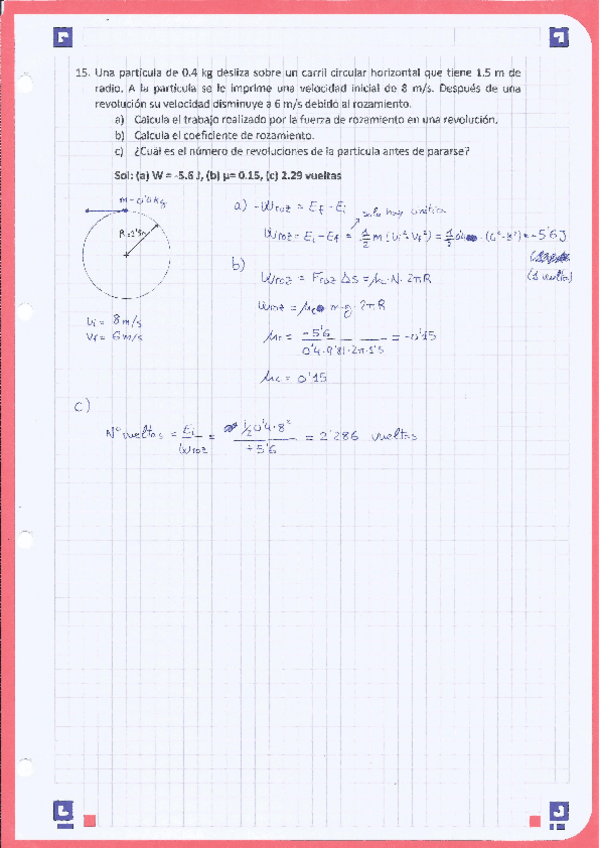 15. Una partícula de 0.4 kg desliza sobre un carril circular horizontal que tiene 1.5 m de
radio. A la partícula se le imprime una velocidad inicial de 8 m/s. Después de una
revolución su velocidad disminuye a 6 m/s debido al rozamiento.
a) Calcula el trabajo realizado por la fuerza de rozamiento en una revolución.
b) Calcula el coeficiente de rozamiento.
c) ¿Cuál es el número de revoluciones de la partícula antes de pararse?
Sol: (a) W = -5.6 J, (b) µ= 0.15, (c) 2.29 vueltas
m = 0'4 kg
R = 1'5m
Vi = 8 m/s
Vf = 6 m/s
a) -Wroz = Ef - Ei
solo hay cinética
Wroz = Ei - Ef = 1/2 m (Vi² - Vf²) = 1/2 0'4 · (6² - 8²) = -5'6 J
(1 vuelta)
b)
Wroz = Froz ΔS = µc · N · 2πR
Wroz = µc m · g · 2πR
µc = -5'6 / 0'4 · 9'81 · 2π · 1'5 = -0'15
µc = 0'15
c)
Nº vueltas = Ei / Wroz = 1/2 0'4 · 8² / +5'6 = 2'286 vueltas